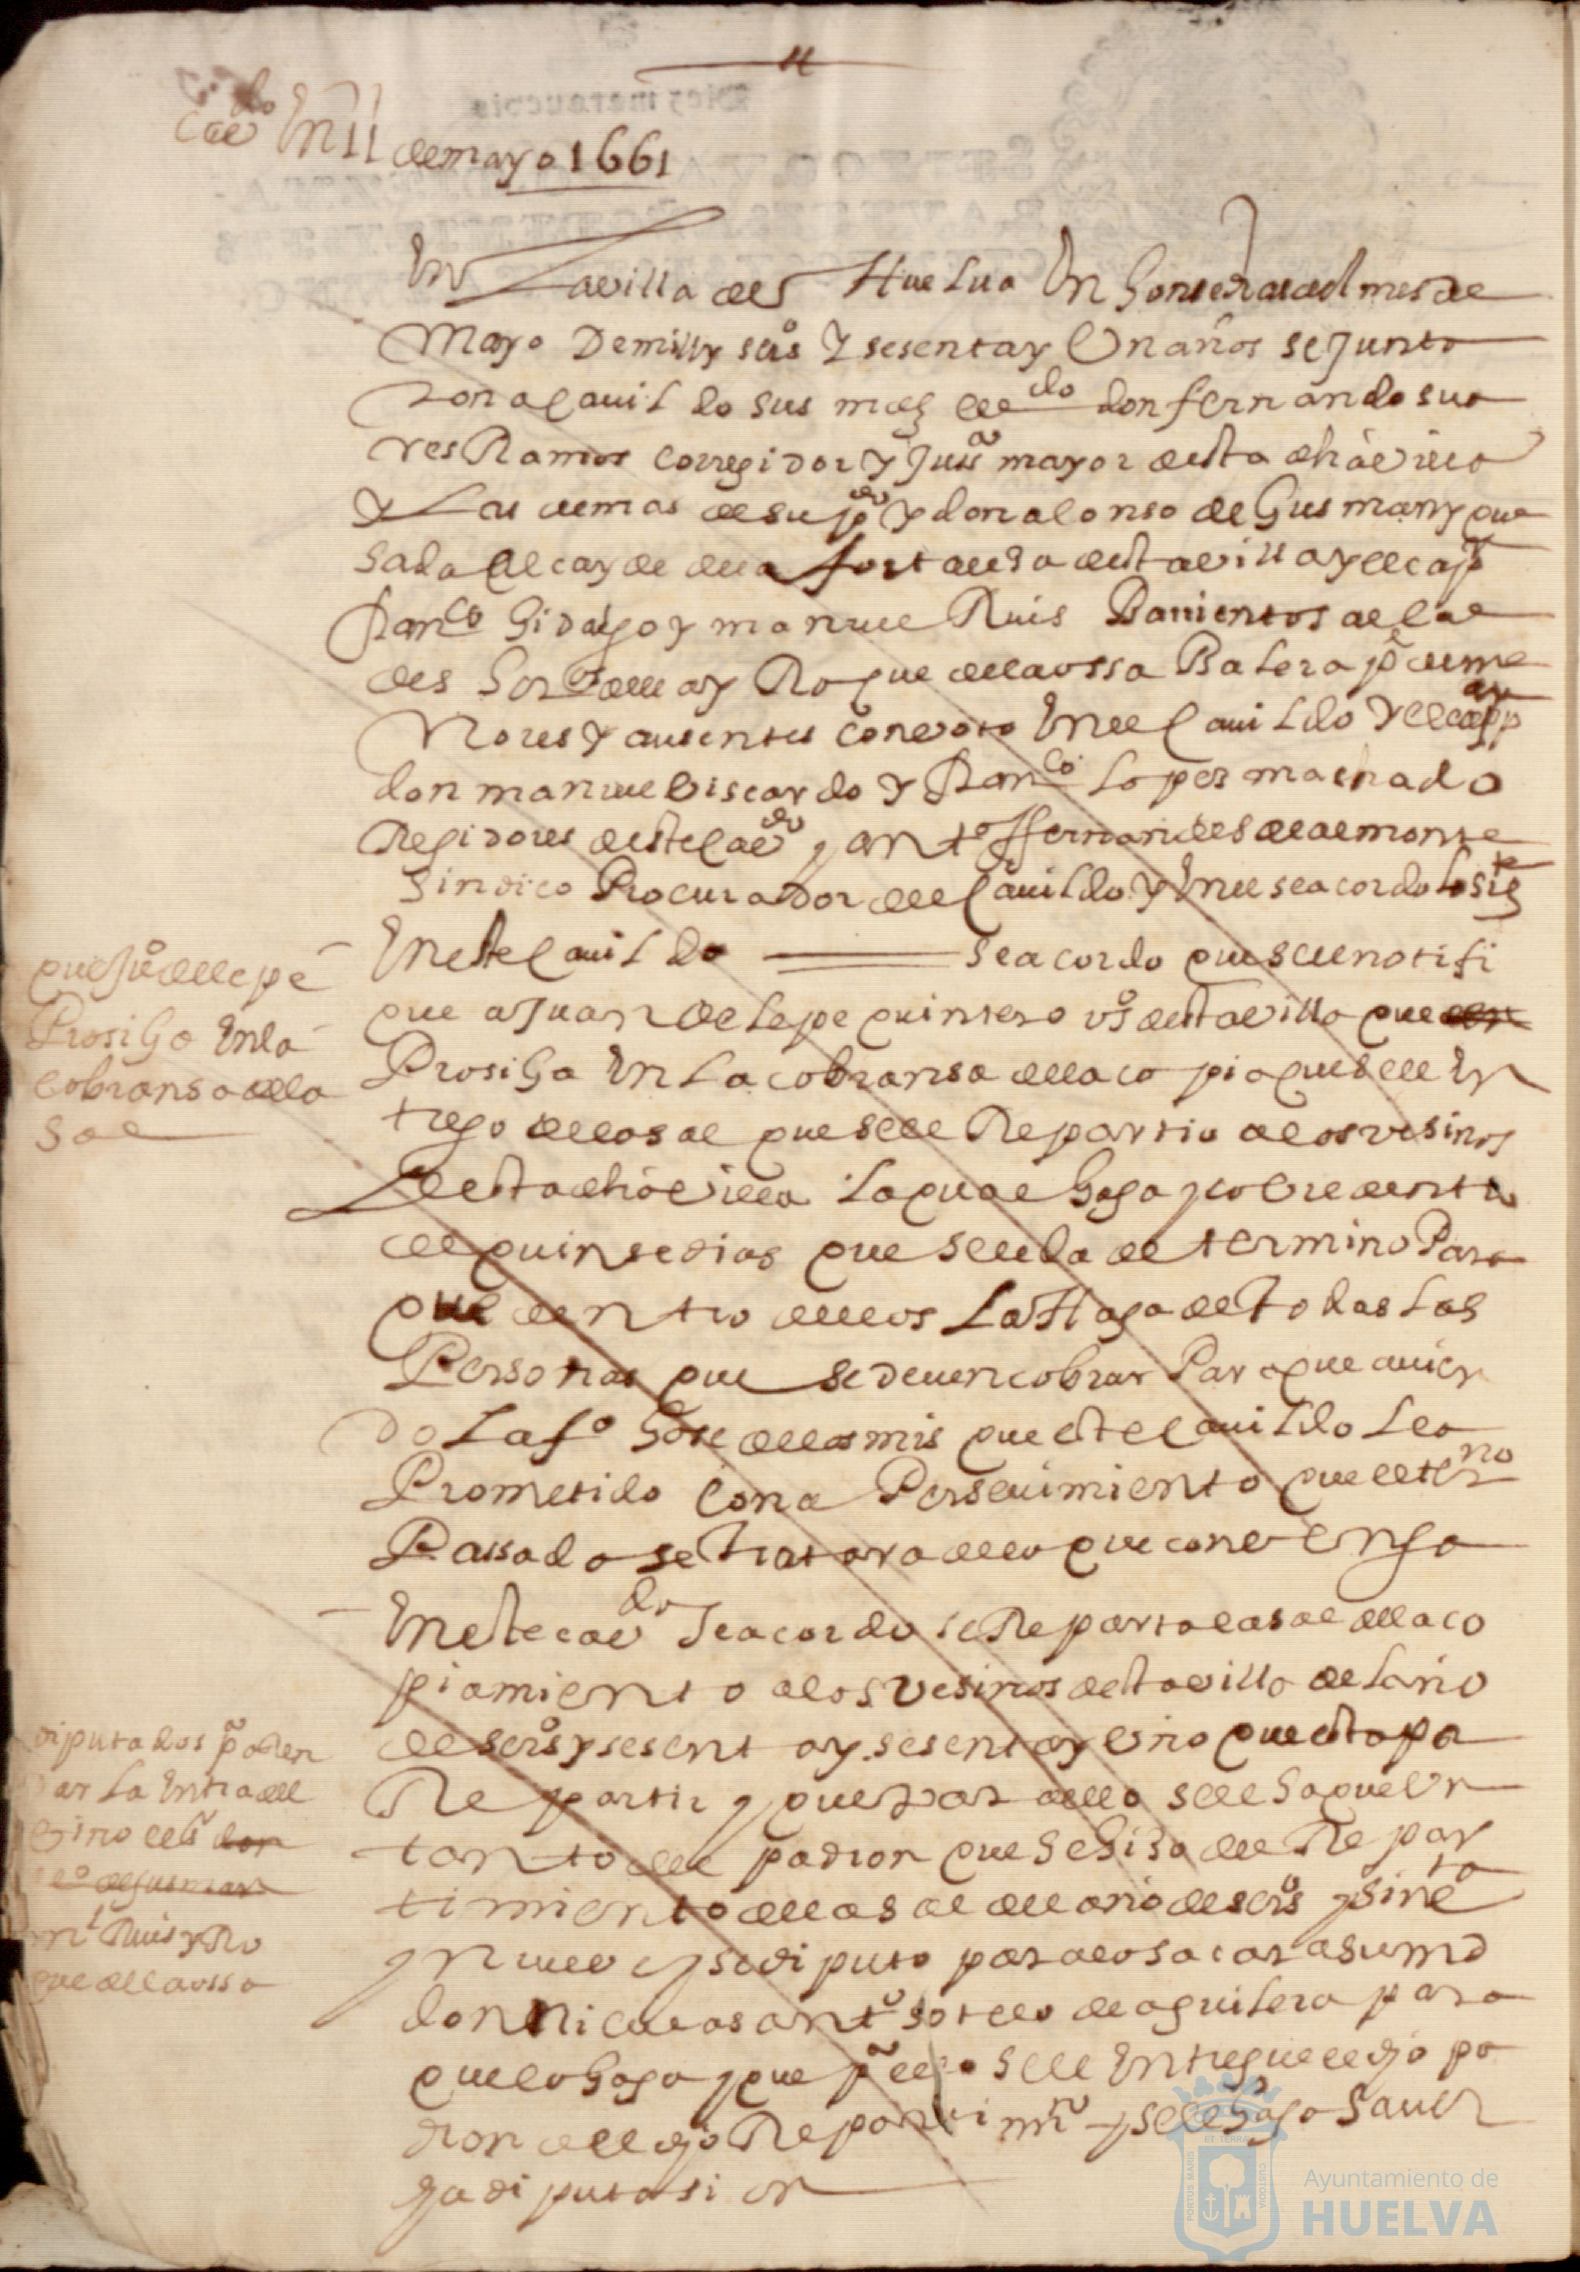 Cavdo En 11 de mayo 1661
En La villa de Huelva En honse dias del mes de
Mayo De mill y seisos y sesenta y Un años se Junto
con al cavildo sus mds ldo don fernando sua
res Ramos corregidor y Justa mayor desta dha villa
y Las demas de su pdo y don alonso de Gusman y que
sada alcayde de la fortalesa desta villa y el capn
franco hidalgo y manuel Ruis Barrientos alcal
des hordinarios y Roque de la ossa Balera pe de me
Nores y ausentes con voto En el cavildo y el capn
don manuel Viscardo y franco Lopes machado
Regidores deste cavdo y anto ffernandes de almonte
sindico Procurador del Cavildo y En el se acordo lo sigte
que Juo de lepe
Prosiga En la
cobransa de la
sal
En este Cavildo se acordo que se le notifi
que a Juan de lepe quintero vso desta villa que
Prosiga En La cobransa de la copia que se le En
trego de la sal que se le Repartio a los vesinos
desta dha villa La qual haga y cobre dentro
de quinse dias que se le da de termino Para
que dentro dellos La Haga de todas Las
Personas que se deven cobrar Para que avien
do La fo gose de las mis que este Cavildo Le a
Prometido con a Persevimiento que el terno
Passado se tratara de lo que convenga
En este cavdo se acordo se Reparta la sal del aco
piamiento a los vesinos desta villa del año
de seisos y sesenta y sesenta y uno que esta por
Repartir y que para ello se le saque Un
tanto del padron que se hiso del Repar
timiento de la sal del año de seisos y sinta
y nueve y se diputo para lo sacar a su md
don Nicolas anto sotelo de aguilera para
que lo haga y que pa ello se le Entregue el dho pa
dron del dho Repartimto y se le haga saver
la diputasion
diputados pa
La Entra del
vino el sr don
alo de gusman
ml Ruis y Ro
que de la ossa
Ayuntamiento de
HUELVA